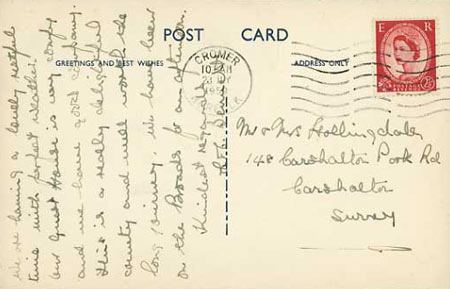 POST CARD
GREETINGS AND BEST WISHES
ADDRESS ONLY
CROMER
10
AM
E R
Mr & Mrs Hollingdale
148 Carshalton Park Rd
Carshalton
Surrey
We are having a lovely restful
time with perfect weather.
our Guest House is very comfy
and we have good company.
This is a really delightful
county and well worth the
long journey. We have been
on the Broads for an afternoon.
Kindest regards